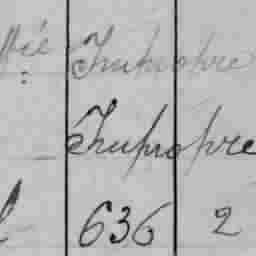 Impropre
Impropre
636 2